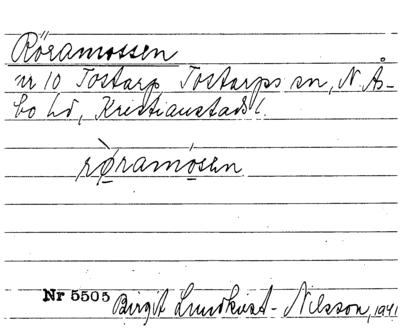 Röramossen
nr 10 Tostarp Tostarps sn, N. Ås-
bo hd, Kristianstads l.
rø̀ramosen
Nr 5505 Birgit Lundkvist-Nilsson, 1941